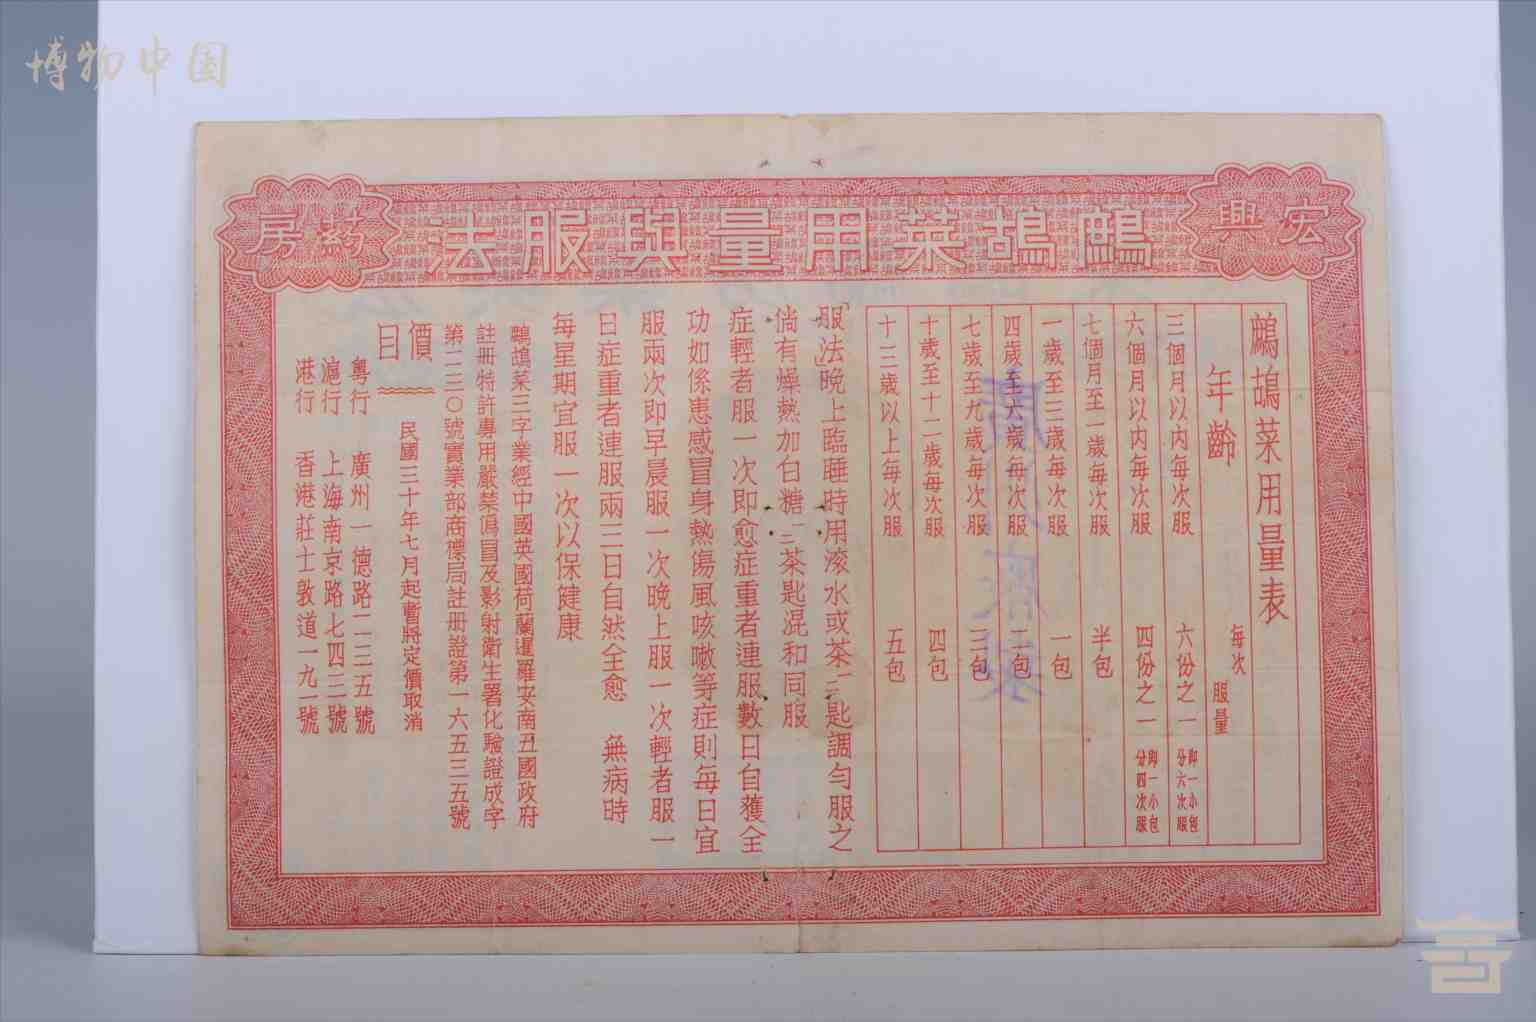 博物中国
宏興
鷓鴣菜用量與服法
葯房
鷓鴣菜用量表
年齡
每次
服量
三個月以內每次服 六份之一 即一小包分六次服
六個月以內每次服 四份之一 即一小包分四次服
七個月至一歲每次服 半包
一歲至三歲每次服 一包
四歲至六歲每次服 二包
七歲至九歲每次服 三包
十歲至十二歲每次服 四包
十三歲以上每次服 五包
「服法」晚上臨睡時用滚水或茶一二匙調勻服之
倘有燥熱加白糖一二茶匙混和同服
症輕者服一次即愈症重者連服數日自獲全
功如係患感冒身熱傷風咳嗽等症則每日宜
服兩次即早晨服一次晚上服一次輕者服一
日症重者連服兩三日自然全愈 無病時
每星期宜服一次以保健康
鷓鴣菜三字業經中國英國荷蘭暹羅安南五國政府
註冊特許專用嚴禁僞冒及影射衛生署化驗證成字
第二二三〇號實業部商標局註冊證第一六五三五號
價目
民國三十年七月起暫將定價取消
粵行 廣州一德路二二三五號
滬行 上海南京路七四三號
港行 香港莊士敦道一九一號